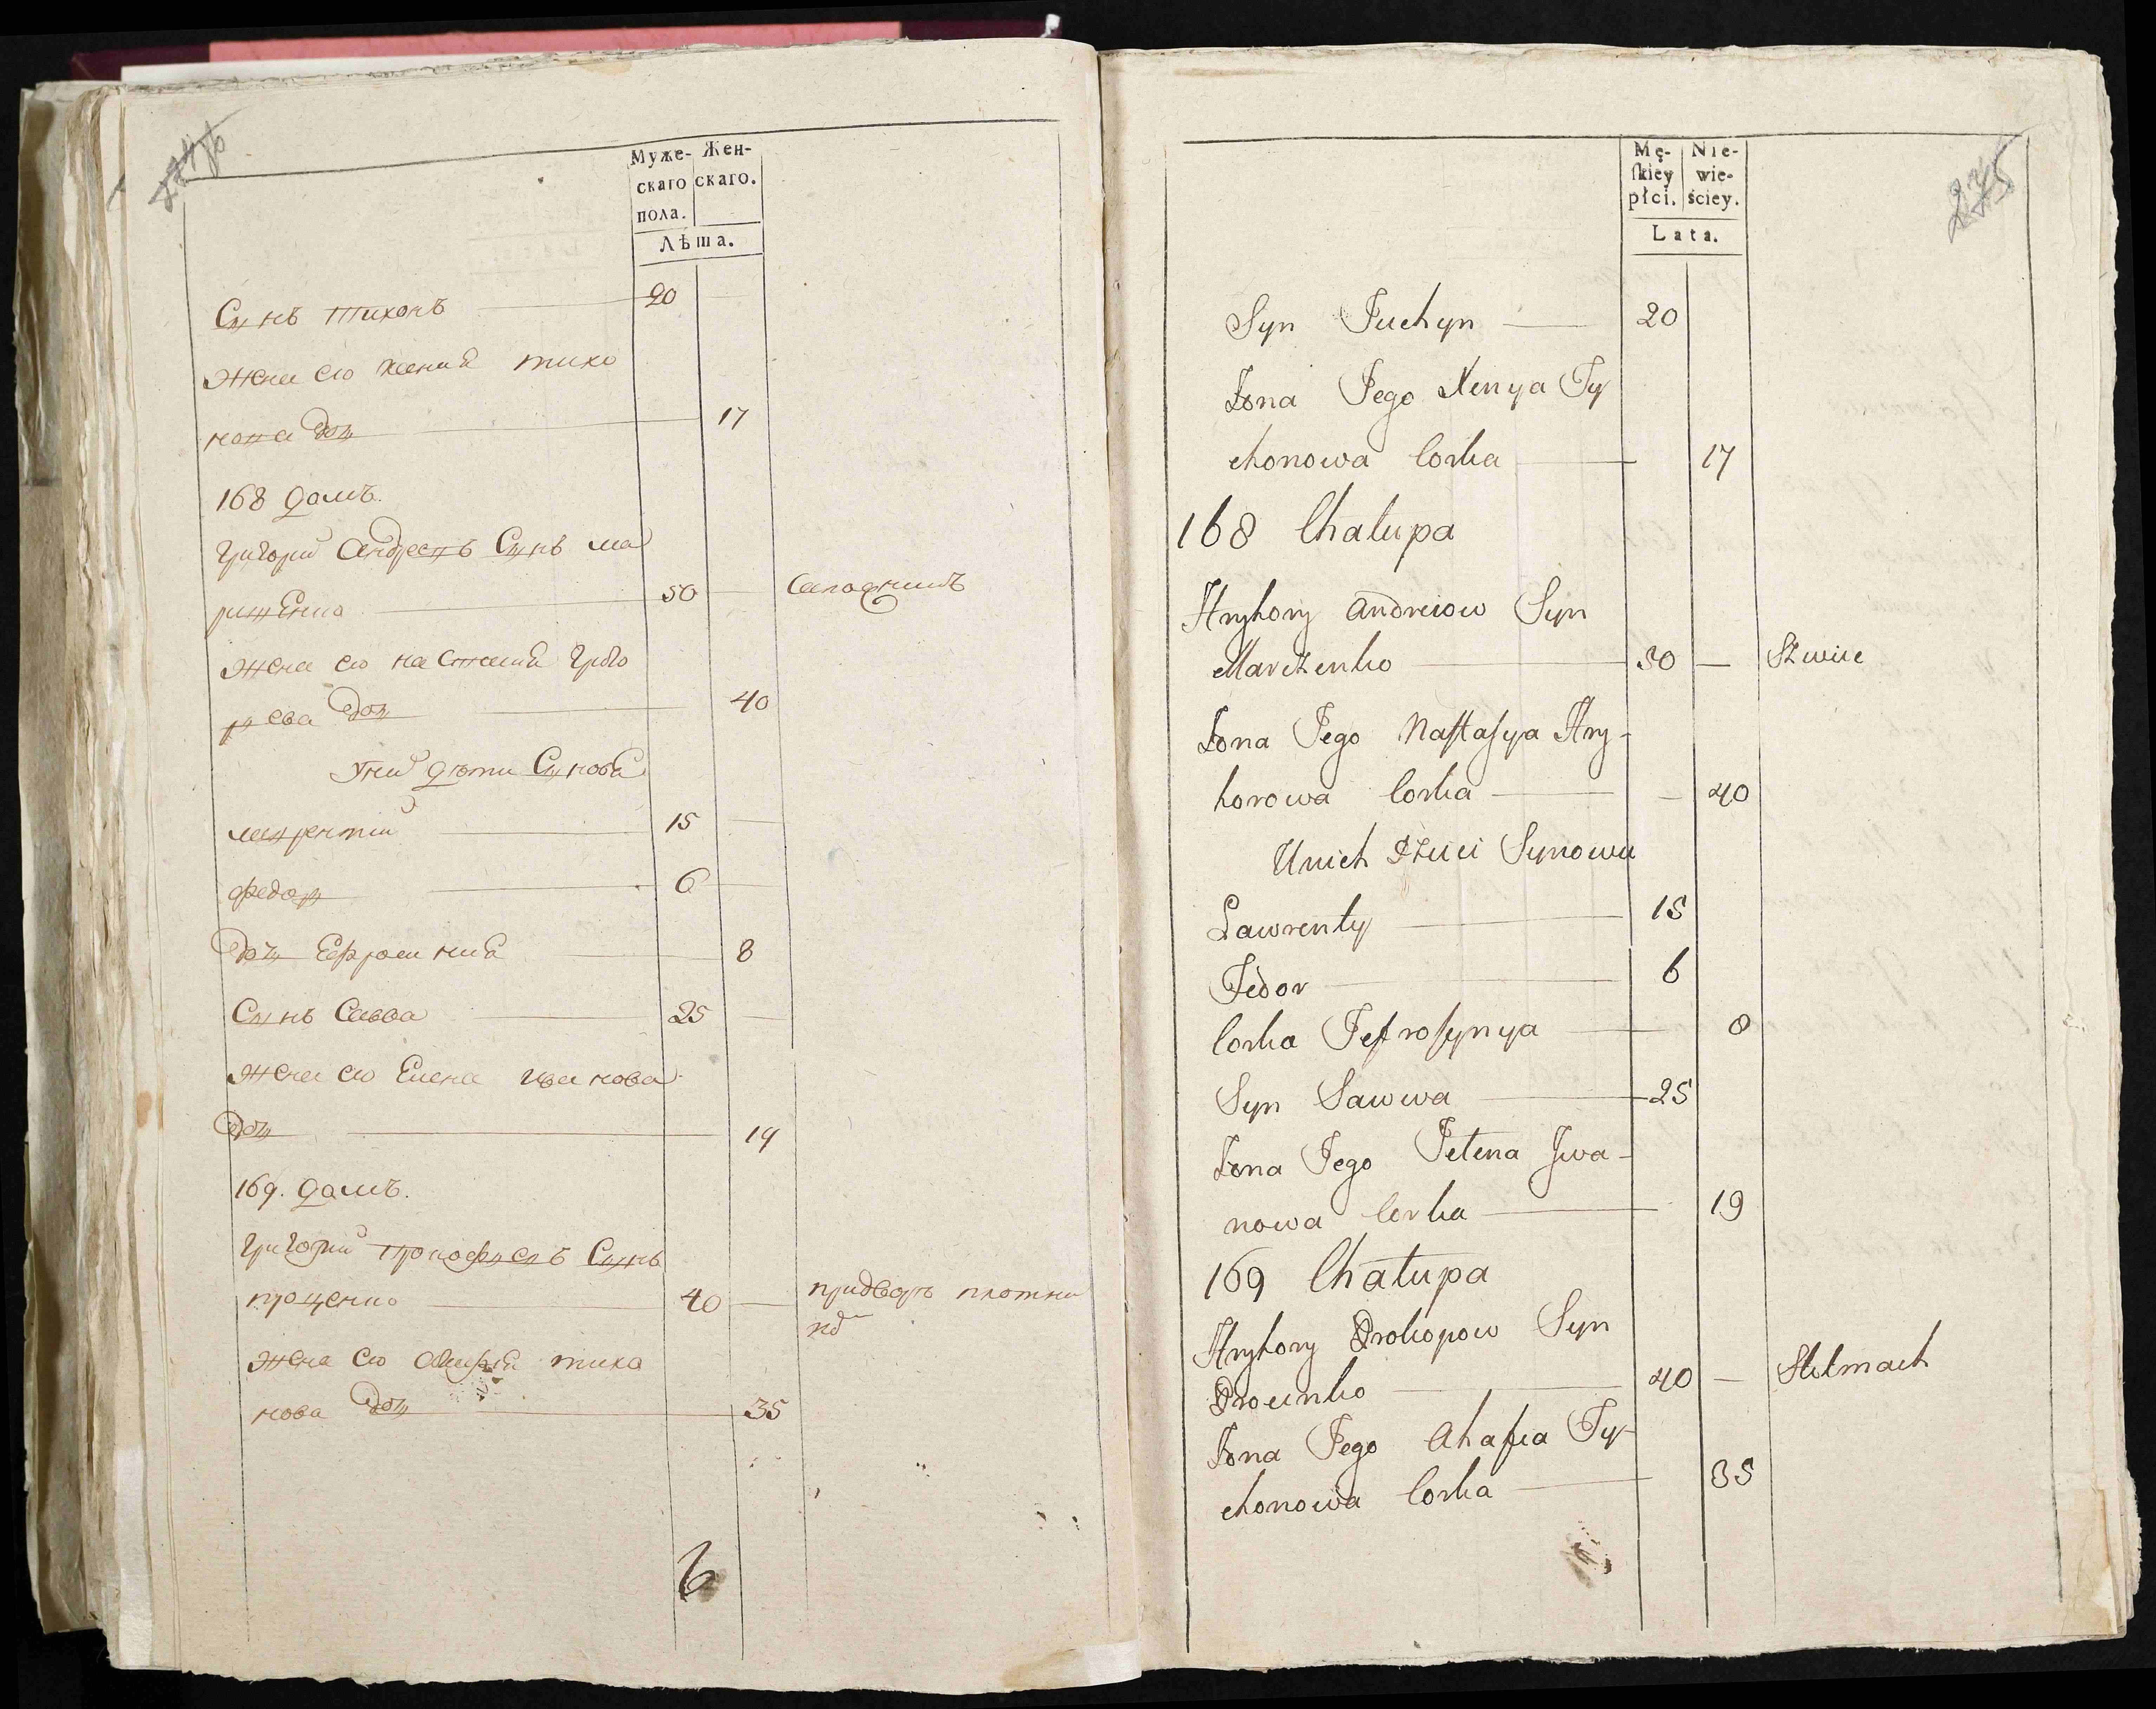 Муже- Жен-
скаго скаго.
пола.
Лѣта.
Сынъ тихонъ 20
жена его ксения тихо
нова доч 17
168 домъ.
григорий Андреевъ Сынъ ма
рченко 50 Сапожникъ
жена его настасия григо
рьева доч 40
У них дети Сыновья
лаврентий 15
федор 6
доч Ефросиния 8
Сынъ Савва 25
жена его Елена иванова
доч 19
169. домъ.
григорий прокофьевъ Сынъ
проценко 40 придворъ плотни
къ
жена его агафия тихо
нова доч 35
6
245
Mę- Nie-
ſkiey wie-
płci. ściey.
Lata.
Syn Tuchyn 20
Żona Jego Xenya Ty
chonowa Corka 17
168 Chałupa
Hryhory Andreiow Syn
Marczenko 50 — Szwiec
Żona Jego Naſtaſya Hry-
horowa Corka — 40
Unich Dzieci Synowie
Lawrenty 15
Fedor 6
Corka Jefroſynya 8
Syn Sawwa 25
Żona Jego Jelena Jwa-
nowa Corka 19
169 Chałupa
Hryhory Prokopow Syn
Procenko 40 — Stelmach
Żona Jego Ahafia Ty-
chonowa Corka 35